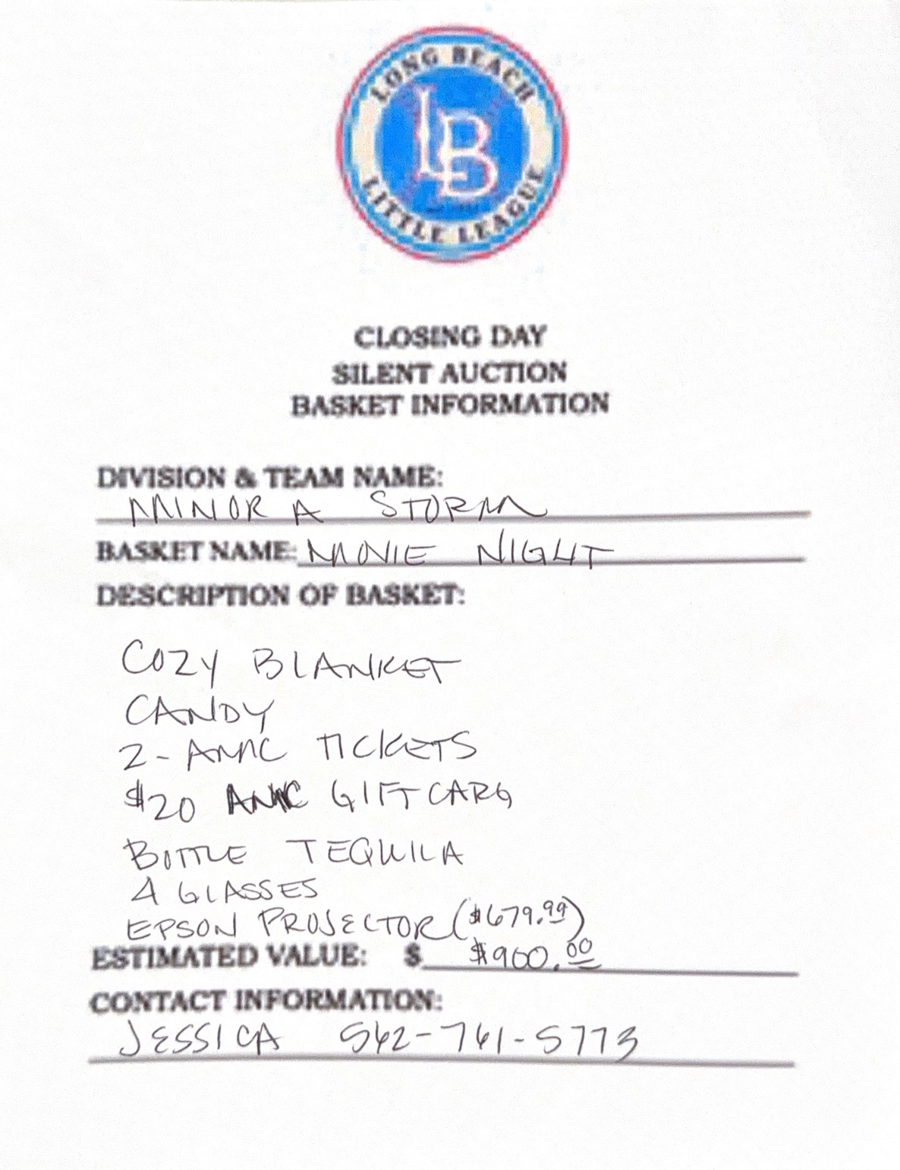 LONG BEACH
LB
LITTLE LEAGUE
CLOSING DAY
SILENT AUCTION
BASKET INFORMATION
DIVISION & TEAM NAME:
MINOR A STORM
BASKET NAME: MOVIE NIGHT
DESCRIPTION OF BASKET:
COZY BLANKET
CANDY
2- AMC TICKETS
$20 AMC GIFT CARD
BOTTLE TEQUILA
4 GLASSES
EPSON PROJECTOR ($679.99)
ESTIMATED VALUE: $ $900.00
CONTACT INFORMATION:
JESSICA 562-761-5773